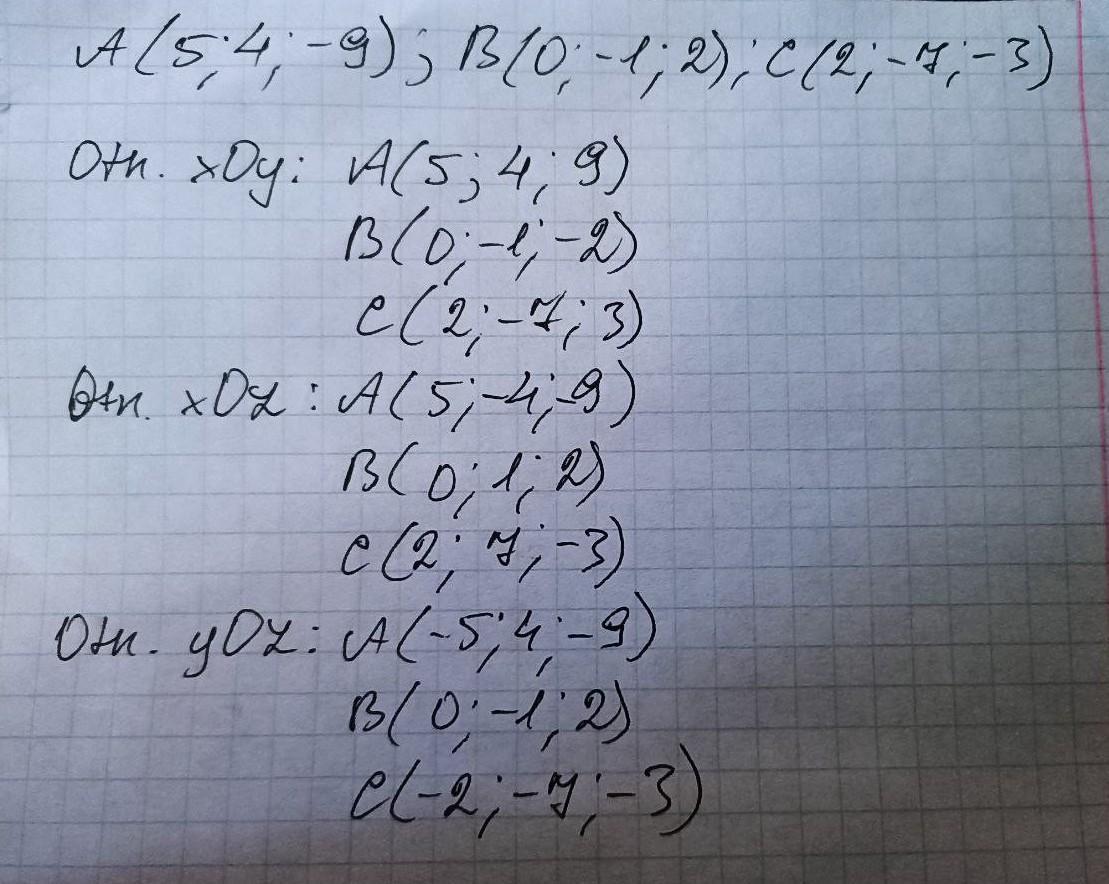 A(5; 4; -9); B(0; -1; 2); C(2; -7; -3)
Отн. xOy: A(5; 4; 9)
B(0; -1; -2)
C(2; -7; 3)
Отн. xOz: A(5; -4; -9)
B(0; 1; 2)
C(2; 7; -3)
Отн. yOz: A(-5; 4; -9)
B(0; -1; 2)
C(-2; -7; -3)